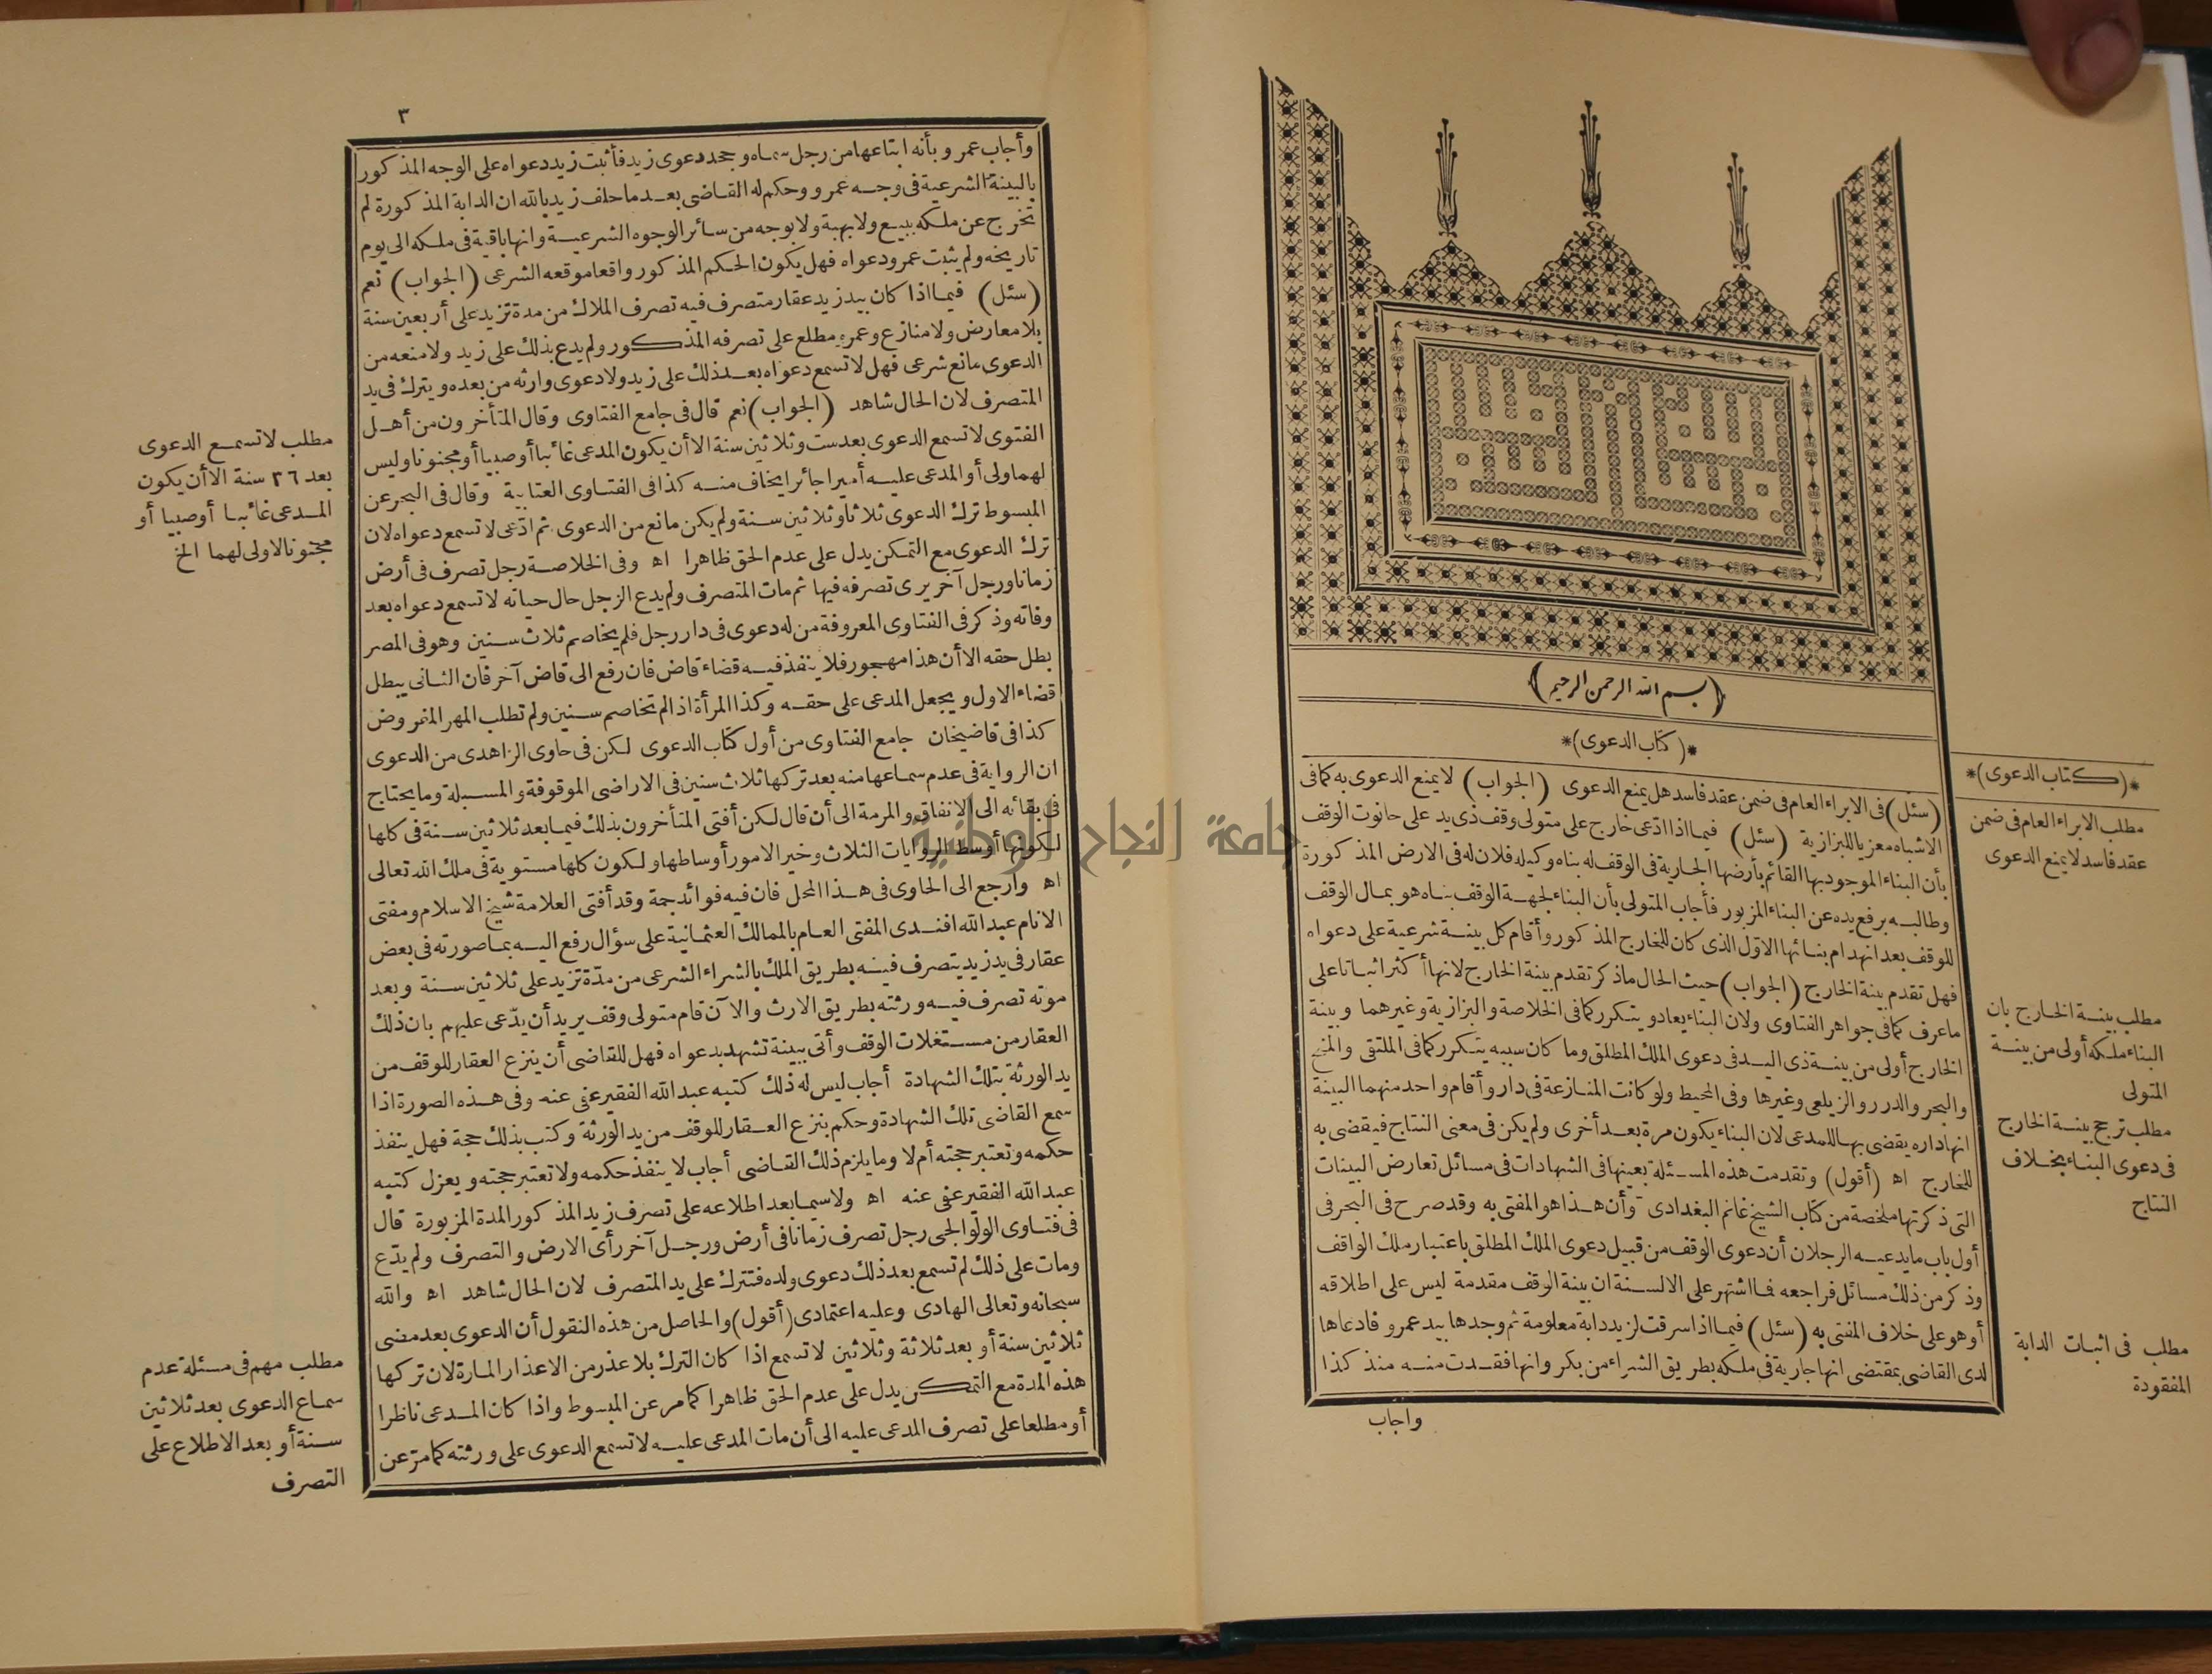 (بسم الله الرحمن الرحيم)
*(كتاب الدعوى)*
(سئل) فى الابراء العام فى ضمن عقد فاسد هل يمنع الدعوى (الجواب) لا يمنع الدعوى به كما فى
الاشباه معزيا للبزازية (سئل) فيما اذا ادعى خارج على متولى وقف ذى يد على حانوت الوقف
بأن البناء الموجود بها القائم بأرضها الجارية فى الوقف له بناه وكيله فلان له فى الارض المذكورة
وطالبه برفع يده عن البناء المزبور فأجاب المتولى بأن البناء لجهة الوقف بناه هو بمال الوقف
للوقف بعد انهدام بنائها الاول الذى كان للخارج المذكور وأقام كل بينة شرعية على دعواه
فهل تقدم بينة الخارج (الجواب) حيث الحال ماذكر تقدم بينة الخارج لانها أكثر اثباتا على
ماعرف كما فى جواهر الفتاوى ولان البناء يعاد ويتكرر كما فى الخلاصة والبزازية وغيرهما وبينة
الخارج أولى من بينة ذى اليد فى دعوى الملك المطلق وما كان سببه يتكرر كما فى الملتقى والمنح
والبحر والدرر والزيلعى وغيرها وفى المحيط ولو كانت المنازعة فى دار وأقام واحد منهما البينة
انها داره يقضى بها للمدعى لان البناء يكون مرة بعد أخرى ولم يكن فى معنى النتاج فيقضى به
للخارج اه (أقول) وتقدمت هذه المسئلة بعينها فى الشهادات فى مسائل تعارض البينات
التى ذكرتها ملخصة من كتاب الشيخ غانم البغدادى وأن هذا هو المفتى به وقد صرح فى البحر فى
أول باب مايدعيه الرجلان أن دعوى الوقف من قبيل دعوى الملك المطلق باعتبار ملك الواقف
وذكر من ذلك مسائل فراجعه فما اشتهر على الالسنة ان بينة الوقف مقدمة ليس على اطلاقه
أو هو على خلاف المفتى به (سئل) فيما اذا سرقت لزيد دابة معلومة ثم وجدها بيد عمرو فادعاها
لدى القاضى بمقتضى انها جارية فى ملكه بطريق الشراء من بكر وانها فقدت منه منذ كذا
واجاب
*(كتاب الدعوى)*
مطلب الابراء العام فى ضمن
عقد فاسد لا يمنع الدعوى
مطلب بينة الخارج بان
البناء ملكه أولى من بينة
المتولى
مطلب ترجح بينة الخارج
فى دعوى البناء بخلاف
النتاج
مطلب فى اثبات الدابة
المفقودة
٣
وأجاب عمرو بأنه ابتاعها من رجل سماه وجحد دعوى زيد فأثبت زيد دعواه على الوجه المذكور
بالبينة الشرعية فى وجه عمرو وحكم له القاضى بعد ما حلف زيد بالله ان الدابة المذكورة لم
تخرج عن ملكه ببيع ولا بهبة ولا بوجه من سائر الوجوه الشرعية وانها باقية فى ملكه الى يوم
تاريخه ولم يثبت عمرو دعواه فهل يكون الحكم المذكور واقعا موقعه الشرعى (الجواب) نعم
(سئل) فيما اذا كان بيد زيد عقار متصرف فيه تصرف الملاك من مدة تزيد على أربعين سنة
بلا معارض ولا منازع وعمرو مطلع على تصرفه المذكور ولم يدع بذلك على زيد ولا منعه من
الدعوى مانع شرعى فهل لا تسمع دعواه بعد ذلك على زيد ولا دعوى وارثه من بعده ويترك فى يد
المتصرف لان الحال شاهد (الجواب) نعم قال فى جامع الفتاوى وقال المتأخرون من أهل
الفتوى لا تسمع الدعوى بعد ست وثلاثين سنة الا أن يكون المدعى غائبا أو صبيا أو مجنونا وليس
لهما ولى أو المدعى عليه أميرا جائرا يخاف منه كذا فى الفتاوى العتابية وقال فى البحر عن
المبسوط ترك الدعوى ثلاثا وثلاثين سنة ولم يكن مانع من الدعوى ثم ادعى لا تسمع دعواه لان
ترك الدعوى مع التمكن يدل على عدم الحق ظاهرا اه وفى الخلاصة رجل تصرف فى أرض
زمانا ورجل آخر يرى تصرفه فيها ثم مات المتصرف ولم يدع الرجل حال حياته لا تسمع دعواه بعد
وفاته وذكر فى الفتاوى المعروفة من له دعوى فى دار رجل فلم يخاصم ثلاث سنين وهو فى المصر
بطل حقه الا أن هذا مهجور فلا ينفذ فيه قضاء قاض فان رفع الى قاض آخر فان الثانى يبطل
قضاء الاول ويجعل المدعى على حقه وكذا المرأة اذا لم تخاصم سنين ولم تطلب المهر المفروض
كذا فى قاضيخان جامع الفتاوى من أول كتاب الدعوى لكن فى حاوى الزاهدى من الدعوى
ان الرواية فى عدم سماعها منه بعد تركها ثلاث سنين فى الاراضى الموقوفة والمسبلة وما يحتاج
فى بقائه الى الانفاق والمرمة الى أن قال لكن أفتى المتأخرون بذلك فيما بعد ثلاثين سنة فى كلها
لكونها أوسط الروايات الثلاث وخير الامور أوساطها ولكون كلها مستوية فى ملك الله تعالى
اه وارجع الى الحاوى فى هذا المحل فان فيه فوائد جمة وقد أفتى العلامة شيخ الاسلام ومفتى
الانام عبد الله افندى المفتى العام بالممالك العثمانية على سؤال رفع اليه بما صورته فى بعض
عقار فى يد زيد يتصرف فيه بطريق الملك بالشراء الشرعى من مدة تزيد على ثلاثين سنة وبعد
موته تصرف فيه ورثته بطريق الارث والآن قام متولى وقف يريد أن يدعى عليهم بان ذلك
العقار من مستغلات الوقف وأتى ببينة تشهد بدعواه فهل للقاضى أن ينزع العقار للوقف من
يد الورثة بتلك الشهادة أجاب ليس له ذلك كتبه عبد الله الفقير عفى عنه وفى هذه الصورة اذا
سمع القاضى تلك الشهادة وحكم بنزع العقار للوقف من يد الورثة وكتب بذلك حجة فهل ينفذ
حكمه وتعتبر حجته أم لا وما يلزم ذلك القاضى أجاب لا ينفذ حكمه ولا تعتبر حجته ويعزل كتبه
عبد الله الفقير عفى عنه اه ولا سيما بعد اطلاعه على تصرف زيد المذكور المدة المزبورة قال
فى فتاوى الولوالجى رجل تصرف زمانا فى أرض ورجل آخر رأى الارض والتصرف ولم يدع
ومات على ذلك لم تسمع بعد ذلك دعوى ولده فتترك على يد المتصرف لان الحال شاهد اه والله
سبحانه وتعالى الهادى وعليه اعتمادى (أقول) والحاصل من هذه النقول أن الدعوى بعد مضى
ثلاثين سنة أو بعد ثلاثة وثلاثين لا تسمع اذا كان الترك بلا عذر من الاعذار المارة لان تركها
هذه المدة مع التمكن يدل على عدم الحق ظاهرا كما مر عن المبسوط واذا كان المدعى ناظرا
أو مطلعا على تصرف المدعى عليه الى أن مات المدعى عليه لا تسمع الدعوى على ورثته كما مر عن
مطلب لا تسمع الدعوى
بعد ٣٦ سنة الا أن يكون
المدعى غائبا أو صبيا أو
مجنونا لا ولى لهما الخ
مطلب مهم فى مسئلة عدم
سماع الدعوى بعد ثلاثين
سنة أو بعد الاطلاع على
التصرف
جامعة النجاح الوطنية